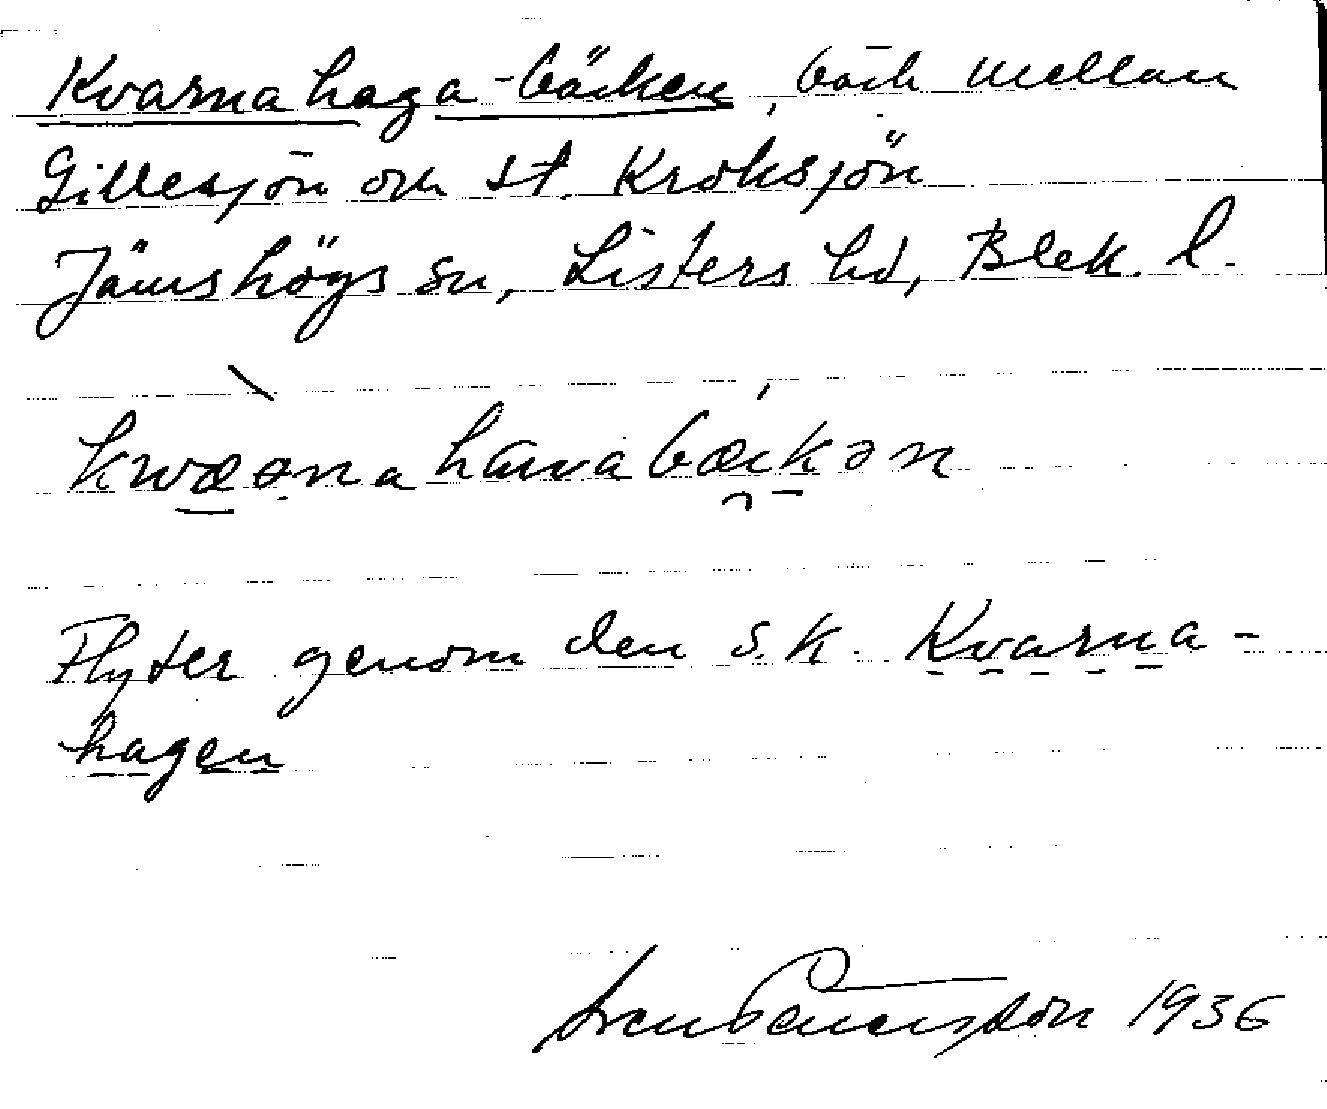 Kvarnahaga-bäcken, bäck mellan
Gillesjön och St. Kroksjön
Jämshögs sn, Listers hd, Blek. l.
kwæəna hava bækən
Flyter genom den s.k. Kvarna-
hagen
Sven Benentsson 1936